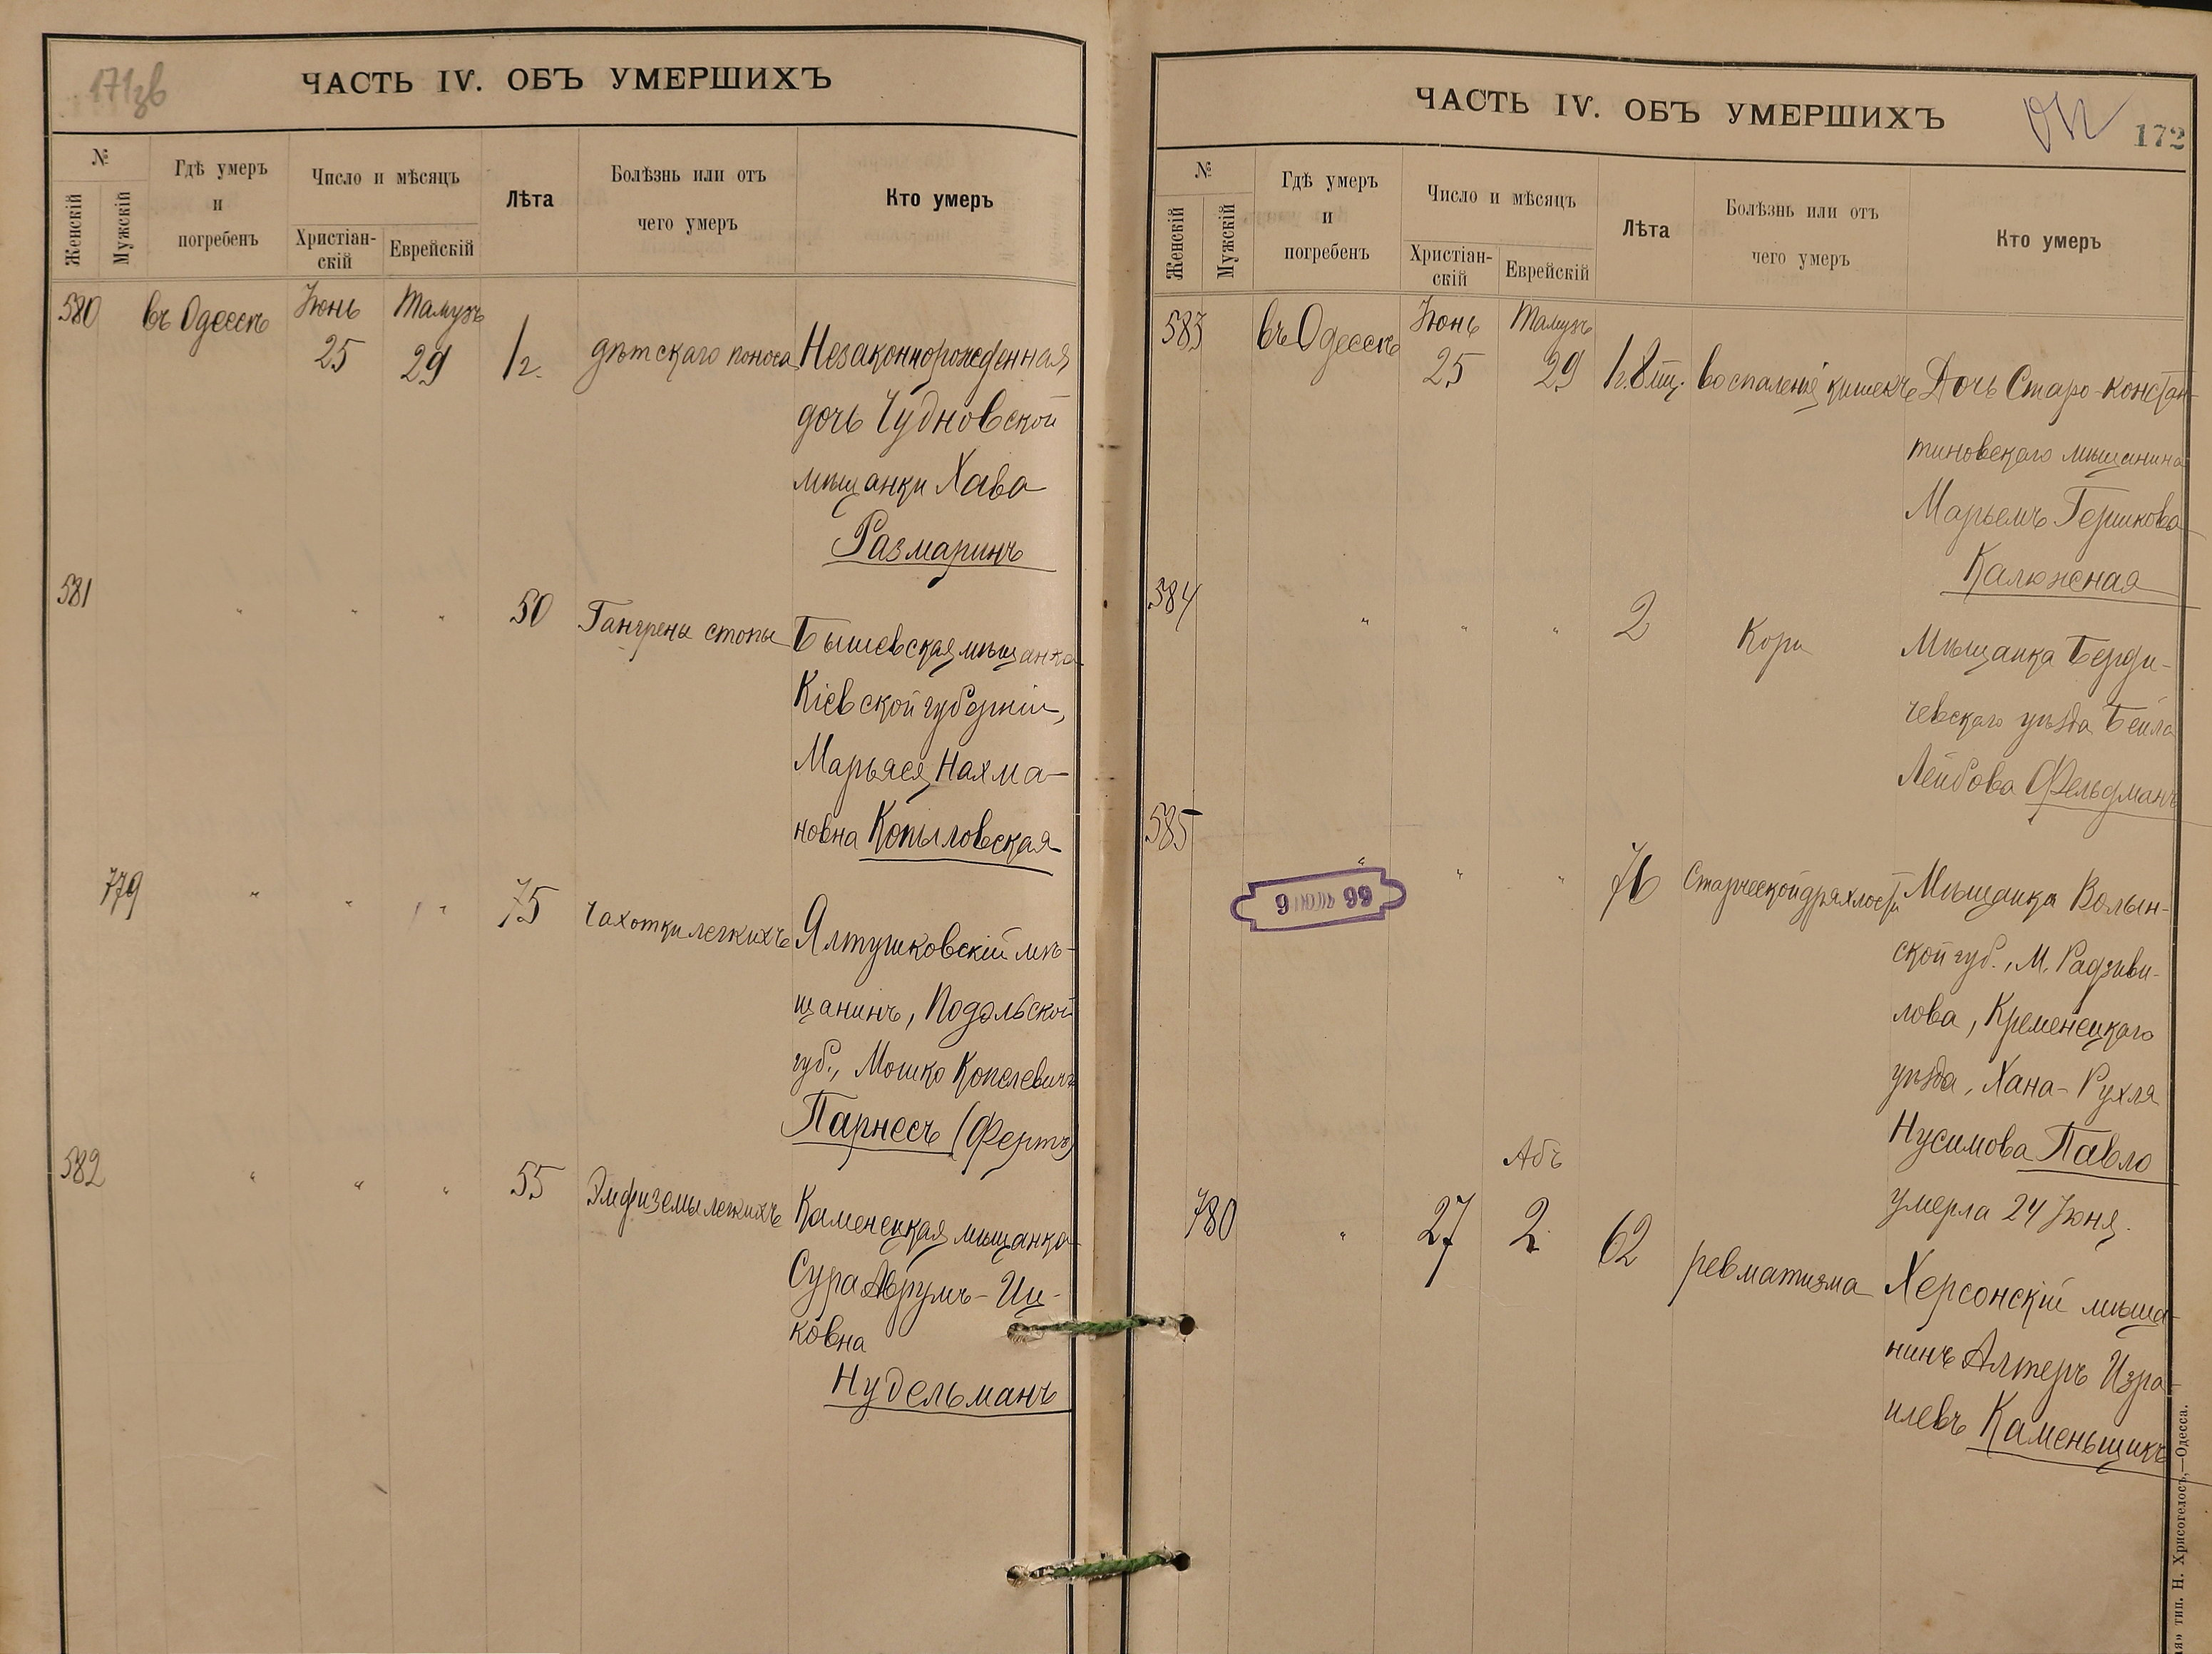 171зв
ЧАСТЬ IV. ОБЪ УМЕРШИХЪ
№
Женскій
Мужскій
Гдѣ умеръ
и
погребенъ
Число и мѣсяцъ
Христіан-
скій
Еврейскій
Лѣта
Болѣзнь или отъ
чего умеръ
Кто умеръ
580 въ Одессѣ Іюнь 25 Тамузъ 29 1 г. дѣтскаго поноса Незаконнорожденная
дочь Чудновской
мѣщанки Хава
Размаринъ
581 " " " 50 Гангрены стопы Бышевская мѣщанка
Кіевской губерніи,
Марьяся Нахма-
новна Копыловская
779 " " " 75 Чахотки легкихъ Ялтушковскій мѣ-
щанинъ, Подольской
губ., Мошко Копелевичъ
Парнесъ (Фертъ)
582 " " " 55 Эмфиземы легкихъ Каменецкая мѣщанка
Сура Аврумъ-Иц-
ковна
Нудельманъ
ЧАСТЬ IV. ОБЪ УМЕРШИХЪ
172
№
Женскій
Мужскій
Гдѣ умеръ
и
погребенъ
Число и мѣсяцъ
Христіан-
скій
Еврейскій
Лѣта
Болѣзнь или отъ
чего умеръ
Кто умеръ
583 въ Одессѣ Іюнь 25 Тамузъ 29 1 г. 8 мц. воспаленія кишекъ Дочь Старо-констан-
тиновскаго мѣщанина
Марьемъ Гершкова
Калюжная
584 " " " 2 Кори Мѣщанка Берди-
чевскаго уѣзда Бейла
Лейбова Фельдманъ
585 " " " 76 Старческой дряхлости Мѣщанка Волын-
ской губ., м. Радзиви-
лова, Кременецкаго
уѣзда, Хана-Рухля
Нусимова Павло
умерла 24 Іюня.
780 " 27 Абъ 2 62 ревматизма Херсонскій мѣща-
нинъ Алтеръ Изра-
илевъ Каменьщикъ
тип. Н. Хрисогелосъ,—Одесса.